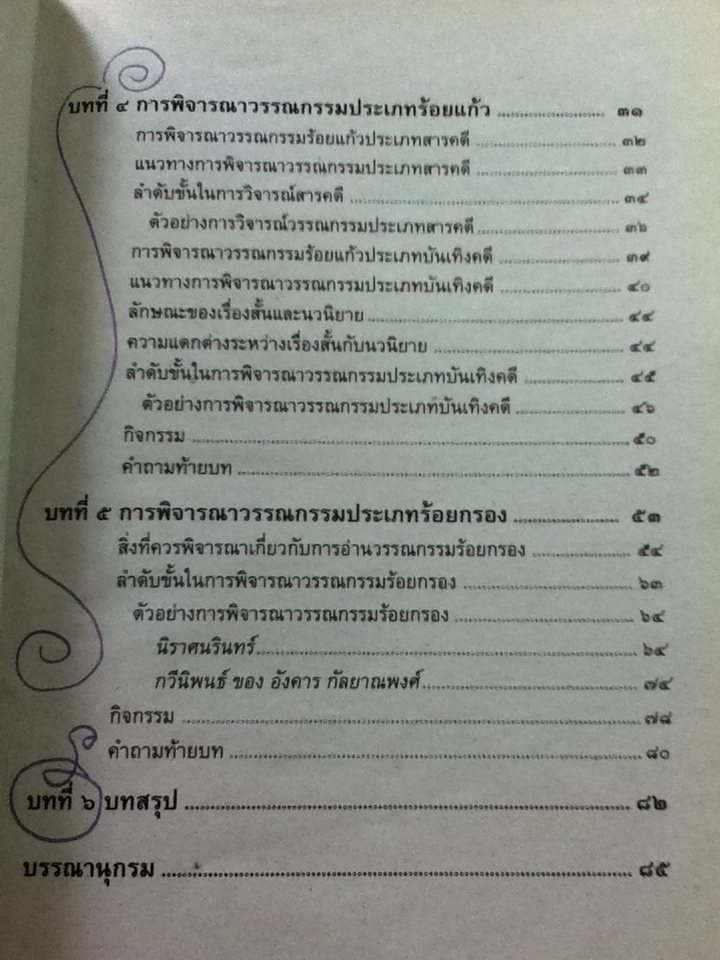 บทที่ ๔ การพิจารณาวรรณกรรมประเภทร้อยแก้ว ........................ ๓๑
การพิจารณาวรรณกรรมร้อยแก้วประเภทสารคดี ........................ ๓๒
แนวทางการพิจารณาวรรณกรรมประเภทสารคดี ........................ ๓๓
ลำดับขั้นในการวิจารณ์สารคดี ........................ ๓๔
ตัวอย่างการวิจารณ์วรรณกรรมประเภทสารคดี ........................ ๓๖
การพิจารณาวรรณกรรมร้อยแก้วประเภทบันเทิงคดี ........................ ๓๙
แนวทางการพิจารณาวรรณกรรมประเภทบันเทิงคดี ........................ ๔๐
ลักษณะของเรื่องสั้นและนวนิยาย ........................ ๔๔
ความแตกต่างระหว่างเรื่องสั้นกับนวนิยาย ........................ ๔๔
ลำดับขั้นในการพิจารณาวรรณกรรมประเภทบันเทิงคดี ........................ ๔๕
ตัวอย่างการพิจารณาวรรณกรรมประเภทบันเทิงคดี ........................ ๔๖
กิจกรรม ........................ ๕๐
คำถามท้ายบท ........................ ๕๒
บทที่ ๕ การพิจารณาวรรณกรรมประเภทร้อยกรอง ........................ ๕๓
สิ่งที่ควรพิจารณาเกี่ยวกับการอ่านวรรณกรรมร้อยกรอง ........................ ๕๔
ลำดับขั้นในการพิจารณาวรรณกรรมร้อยกรอง ........................ ๖๓
ตัวอย่างการพิจารณาวรรณกรรมร้อยกรอง ........................ ๖๔
นิราศนรินทร์ ........................ ๖๔
กวีนิพนธ์ ของ อังคาร กัลยาณพงศ์ ........................ ๗๔
กิจกรรม ........................ ๗๘
คำถามท้ายบท ........................ ๘๐
บทที่ ๖ บทสรุป ........................ ๘๒
บรรณานุกรม ........................ ๘๕